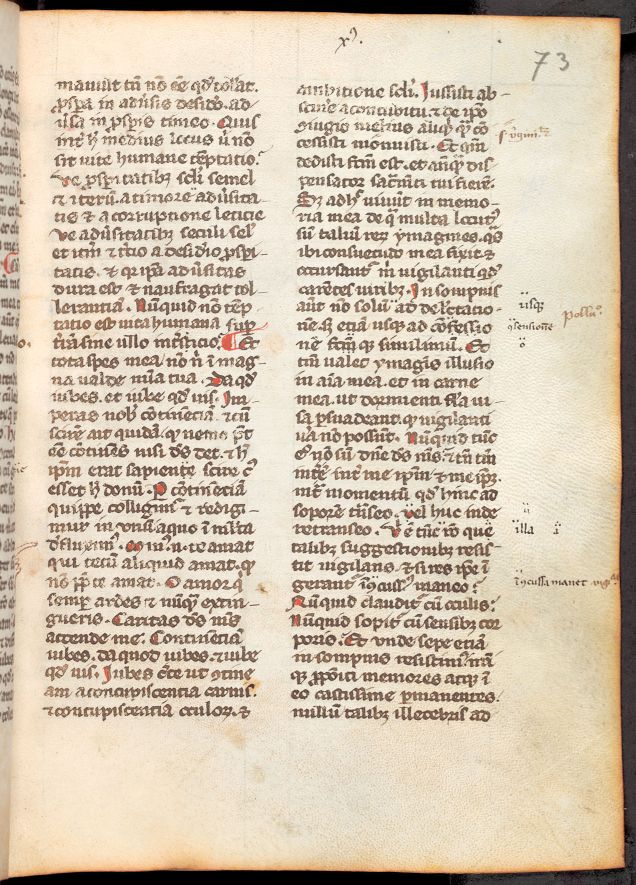 xͦ
73
mauult tñ nō eē qđ tollat.
ꝓspa in aduͥsis desidͦo. ad-
uͥsa in ꝓspis timeo. Quis
intͥ h̄ medius locus uͥ nō
sit vite humane tēptatioˀ
Ve ꝓspitatibꝫ scl̓i semel
⁊ iterū. a timore aduͥsita-
tis ⁊ a corruptione leticie
Ve aduͥsitatibꝫ seculi sel̓
et itͥm ⁊ tͥtio a desidͥio ꝓspi-
tatis. ⁊ qꝛ ipā aduͥsitas
dura est ⁊ naufragat tol-
lerantiā. Nūquid nō tēp-
tatio est uita humana suꝑ
tͥrā sine ullo intͥsticio. ¶ Et
tota spes mea nō nͥ i mag-
na valde mīa tua. Da qđ
iubes. et iube qđ vis. Im-
peras nob̓ cōtinētiā. ⁊ cū
scirē ait quidā. ꝙ nemo pōt
eē cōtinēs nisi dꝰ det. ⁊ h̄
ipm̄ erat sapiētie scire cꝰ
esset h̄ donū. ꝑ cōtinētiā
quippe colligimͥ ⁊ redigi-
mur in vnū a quo i mͣlta
dͥfluximꝰ. Minͥ .n. te amat
qui tecū aliquid amat. ꝙ
nō ꝓpͥ te amat. O amor qͥ
semꝑ ardes ⁊ nūꝙ̄ extin-
gueris. Caritas dꝰ mꝰ
accende me. Continētiā
iubes. da quod iubes. ⁊ iube
qđ vis. Iubes cͥte ut ꝯtine
am a concupiscentia carnis.
⁊ concupiscentia oculoꝝ. ⁊
ambitione scl̓i. Iussisti ab-
scīere a concubitu. ⁊ de ipō
ꝯiugio melius aliqͥd qͣꝫ cō
cessisti monuisti. Et qm̄
dedisti fcm̄ est. et anteqͣꝫ dis
pensator sacͣmti tui fierē.
Sꝫ adhͦ viuūt in memo-
ria mea de qͣ multa locutꝰ
sū taliū reꝝ ymagines. qͣs
ibi ꝯsuetudo mea fixit. ⁊
occursant mͥ vigilanti qͥdē
carētes viribꝫ. In sompnis
aut̄ nō solū ad delectatio-
nē. sꝫ etiā usqꝫ ad cōsēssio
nē fcm̄qꝫ simillimū. Et
tm̄ valet ymagīs illusio
in aīa mea. et in carne
mea. ut dormienti fl̓a ui
sa ꝑsuadeant. qͦ vigilanti
uͥa nō possūt. Nūquid tūc
ēgͦ nō sū dn̄e dꝰ mꝰ. ⁊ tn̄ tm̄
int̓ē intͥ me ip̄m ⁊ me ip̄ꝫ.
intͣ momentū qͦ hinc ad
soporē tͣnseo. vel huc inde
retranseo. Vͥ ē tūc rͦ qua
talibꝫ suggestionibꝫ resis-
tit vigilans. ⁊ si res ipē i
gerant̄ icͦcussꝰ maneoˀ
Nūquid claudit̄ cū oculisˀ
Nūquid sopit̄ cū sensibꝫ cor
poris. Et vnde sepe etiā
in sompnis resistimꝰ. nr̄iqͥ
ꝓpōiti memores atqꝫ i
eo castissime ꝑmanentes.
nullū talibꝫ illecebris ad
usqꝫ
ꝯsensionē
polluͦ
illa i
icͦcussa manet